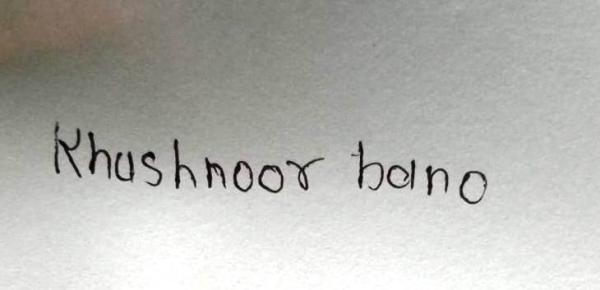 Khushnoor bano